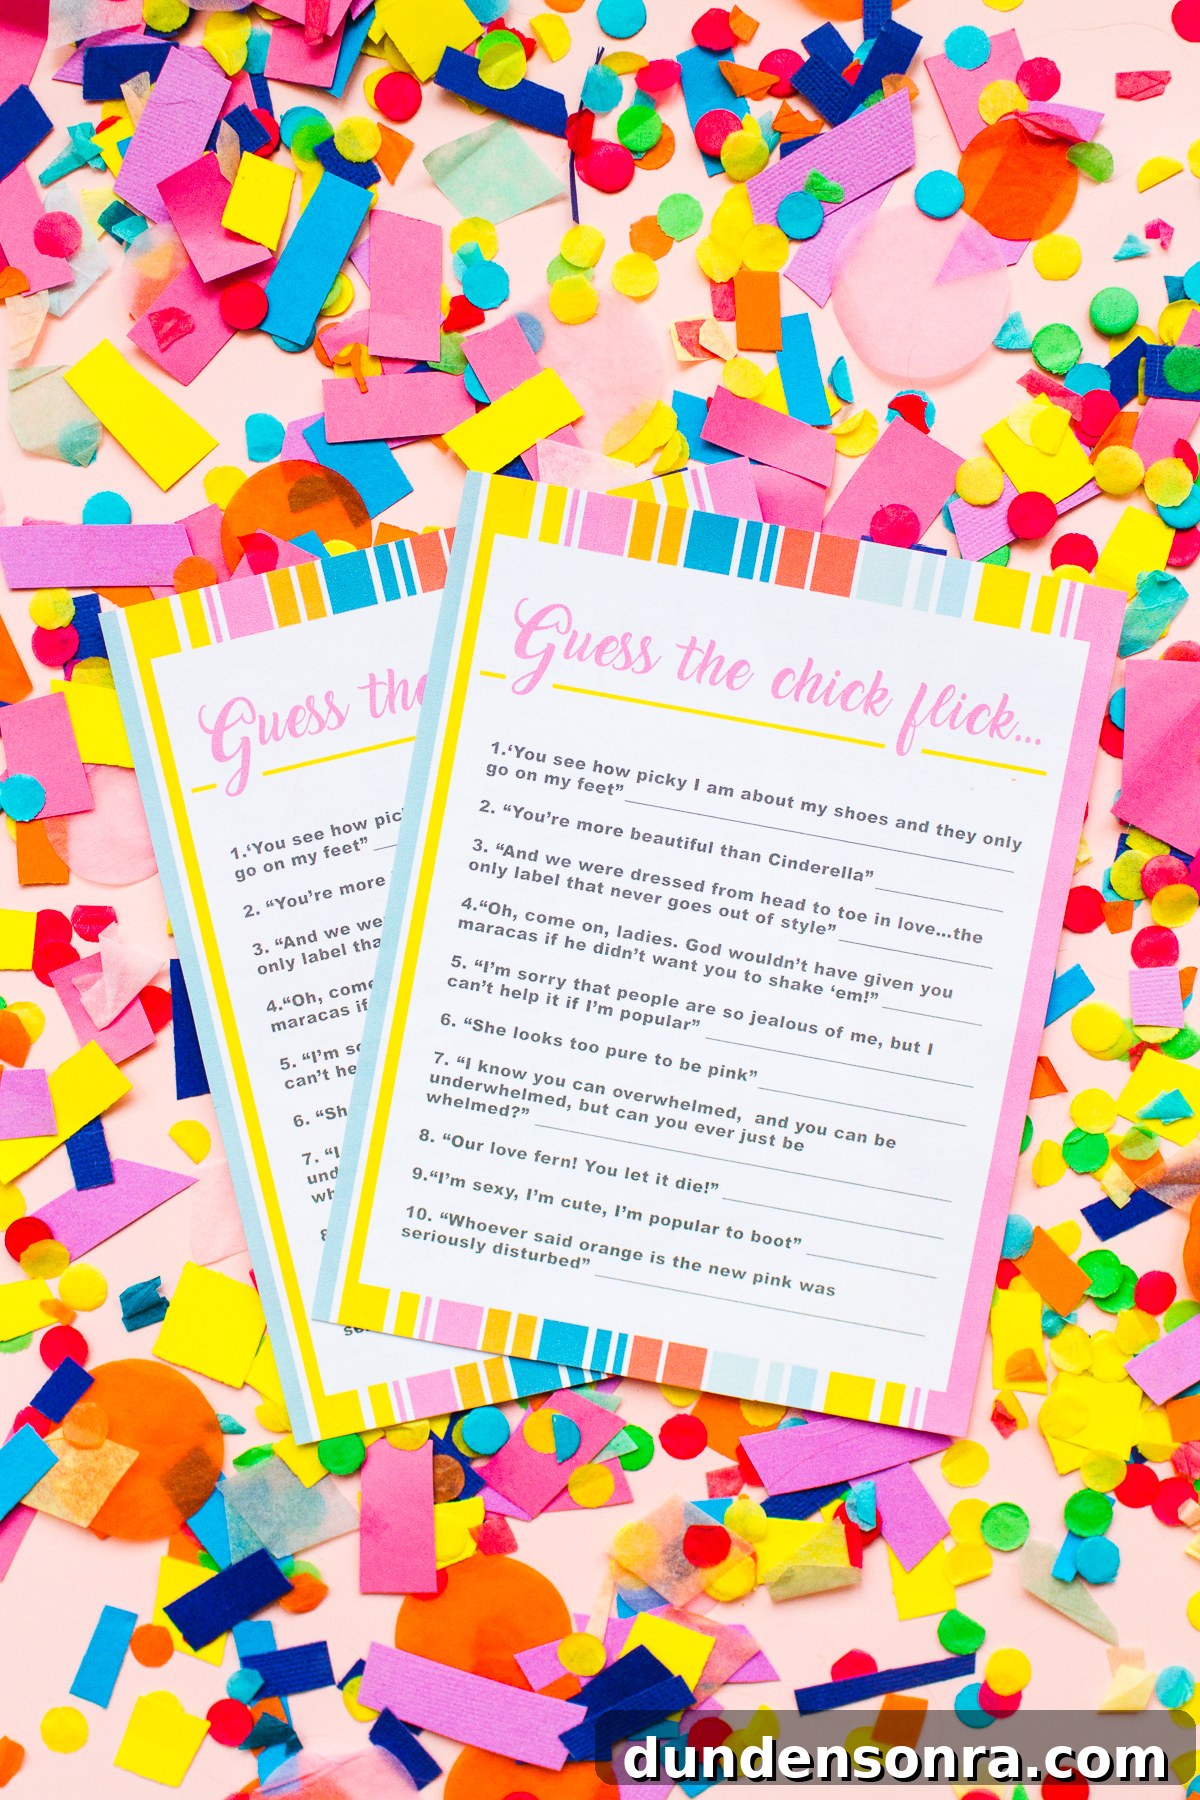 Guess the
1.‘You see how pic
go on my feet”
2. “You’re more
3. “And we we
only label tha
4.“Oh, come
maracas if
5. “I’m so
can’t he
6. “Sh
7. “I
und
wh
8
se
Guess the chick flick...
1.‘You see how picky I am about my shoes and they only
go on my feet”
2. “You’re more beautiful than Cinderella”
3. “And we were dressed from head to toe in love...the
only label that never goes out of style”
4.“Oh, come on, ladies. God wouldn’t have given you
maracas if he didn’t want you to shake ‘em!”
5. “I’m sorry that people are so jealous of me, but I
can’t help it if I’m popular”
6. “She looks too pure to be pink”
7. “I know you can overwhelmed, and you can be
underwhelmed, but can you ever just be
whelmed?”
8. “Our love fern! You let it die!”
9.“I’m sexy, I’m cute, I’m popular to boot”
10. “Whoever said orange is the new pink was
seriously disturbed”
dundensonra.com